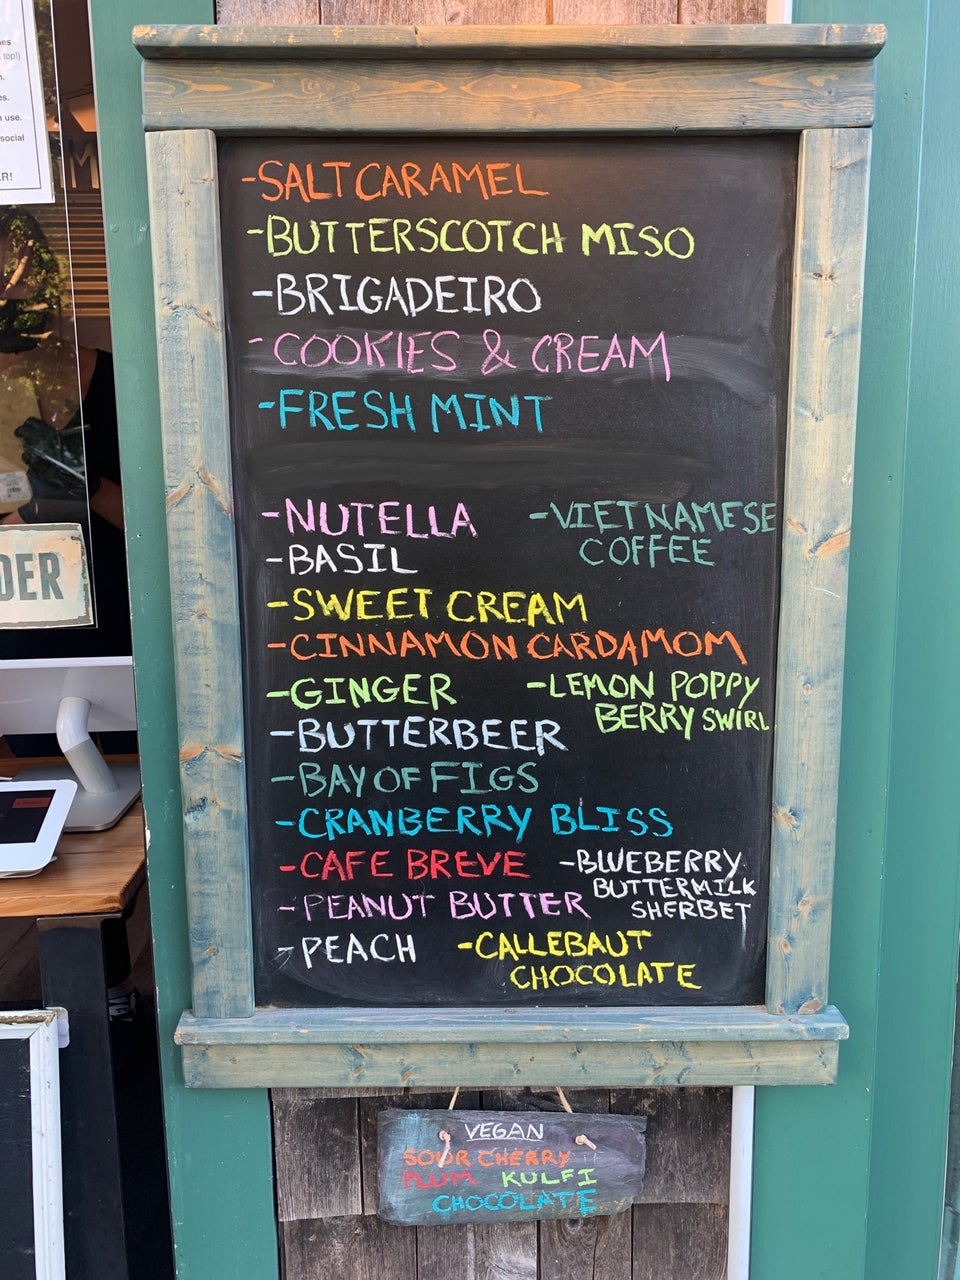 top!)
use.
social
R!
DER
-SALT CARAMEL
-BUTTERSCOTCH MISO
-BRIGADEIRO
-COOKIES & CREAM
-FRESH MINT
-NUTELLA
-VIETNAMESE
COFFEE
-BASIL
-SWEET CREAM
-CINNAMON CARDAMOM
-GINGER
-LEMON POPPY
BERRY SWIRL
-BUTTERBEER
-BAY OF FIGS
-CRANBERRY BLISS
-CAFE BREVE
-BLUEBERRY
BUTTERMILK
SHERBET
-PEANUT BUTTER
-PEACH
-CALLEBAUT
CHOCOLATE
VEGAN
SOUR CHERRY
PLUM KULFI
CHOCOLATE